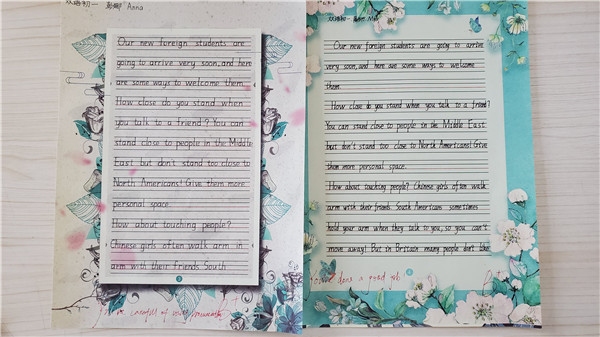 双语初一 Anna
Our new foreign students are
going to arrive very soon, and here
are some ways to welcome them.
How close do you stand when
you talk to a friend? You can
stand close to people in the Middle
East but don't stand too close to
North Americans! Give them more
personal space.
How about touching people?
Chinese girls often walk arm in
arm with their friends South
3
双语初一
Our new foreign students are going to arrive
very soon, and here are some ways to welcome
them.
How close do you stand when you talk to a friend?
You can stand close to people in the Middle East
but don't stand too close to North Americans! Give
them more personal space.
How about touching people? Chinese girls often walk
arm with their friends South Americans sometimes
hold your arm when they talk to you, so you can't
move away! But in Britain many people don't like
You've done a good job